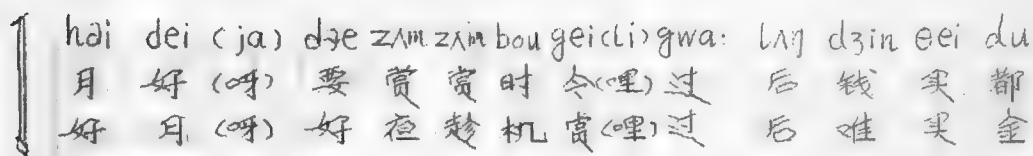 həi dei (ja) dɜe zʌm zʌm bou gei(li) gwa: lʌŋ dʒin ɵei du
月 好 (呀) 要 赏 赏 时 令(哩) 过 后 钱 买 都
好 月 (呀) 好 夜 趁 机 赏(哩) 过 后 难 买 金